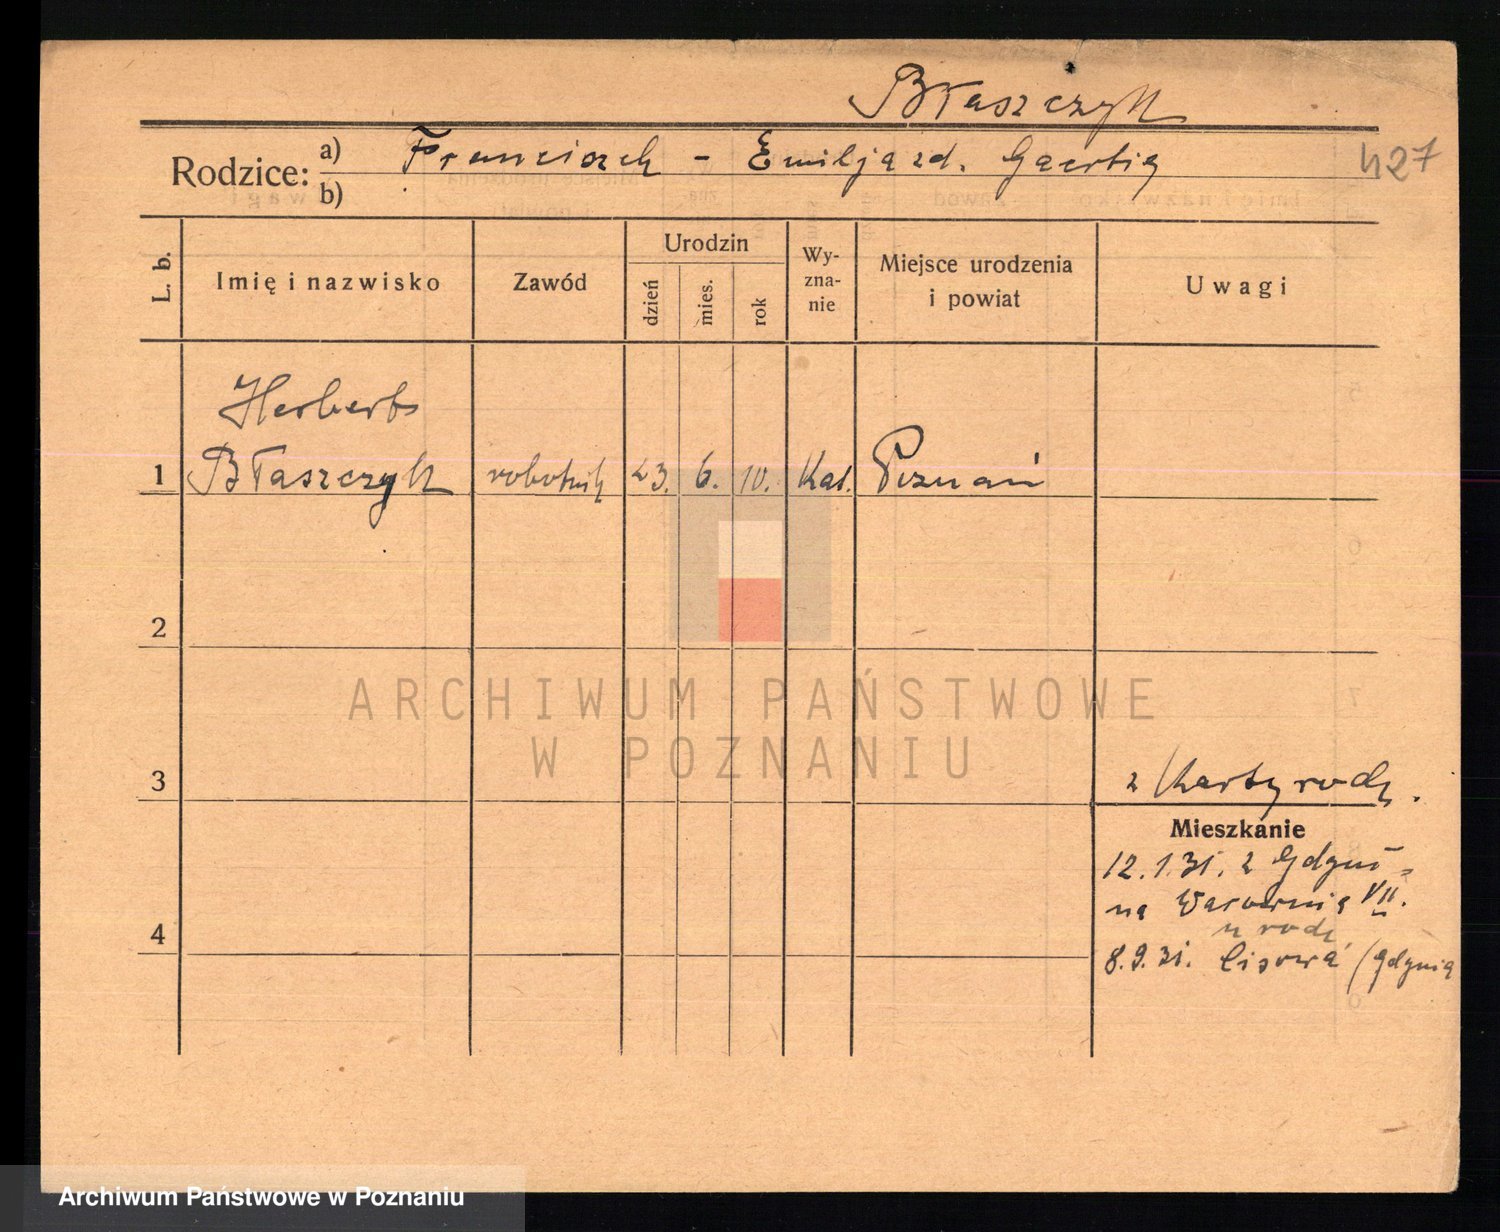 Błaszczyk
Rodzice: a) Franciszek - Emilja zd. Gaertig
b)
427
L. b.
Imię i nazwisko
Zawód
Urodzin
dzień
mies.
rok
Wy-
zna-
nie
Miejsce urodzenia
i powiat
Uwagi
Herbert
1 Błaszczyk robotnik 23. 6. 10. Kat. Poznań
2
ARCHIWUM PAŃSTWOWE
W POZNANIU
3
z Karty rodz.
Mieszkanie
12.1.31. z Gdyni
na VII.
4
u rodz.
8.9.31. Cisowa (Gdynia
Archiwum Państwowe w Poznaniu